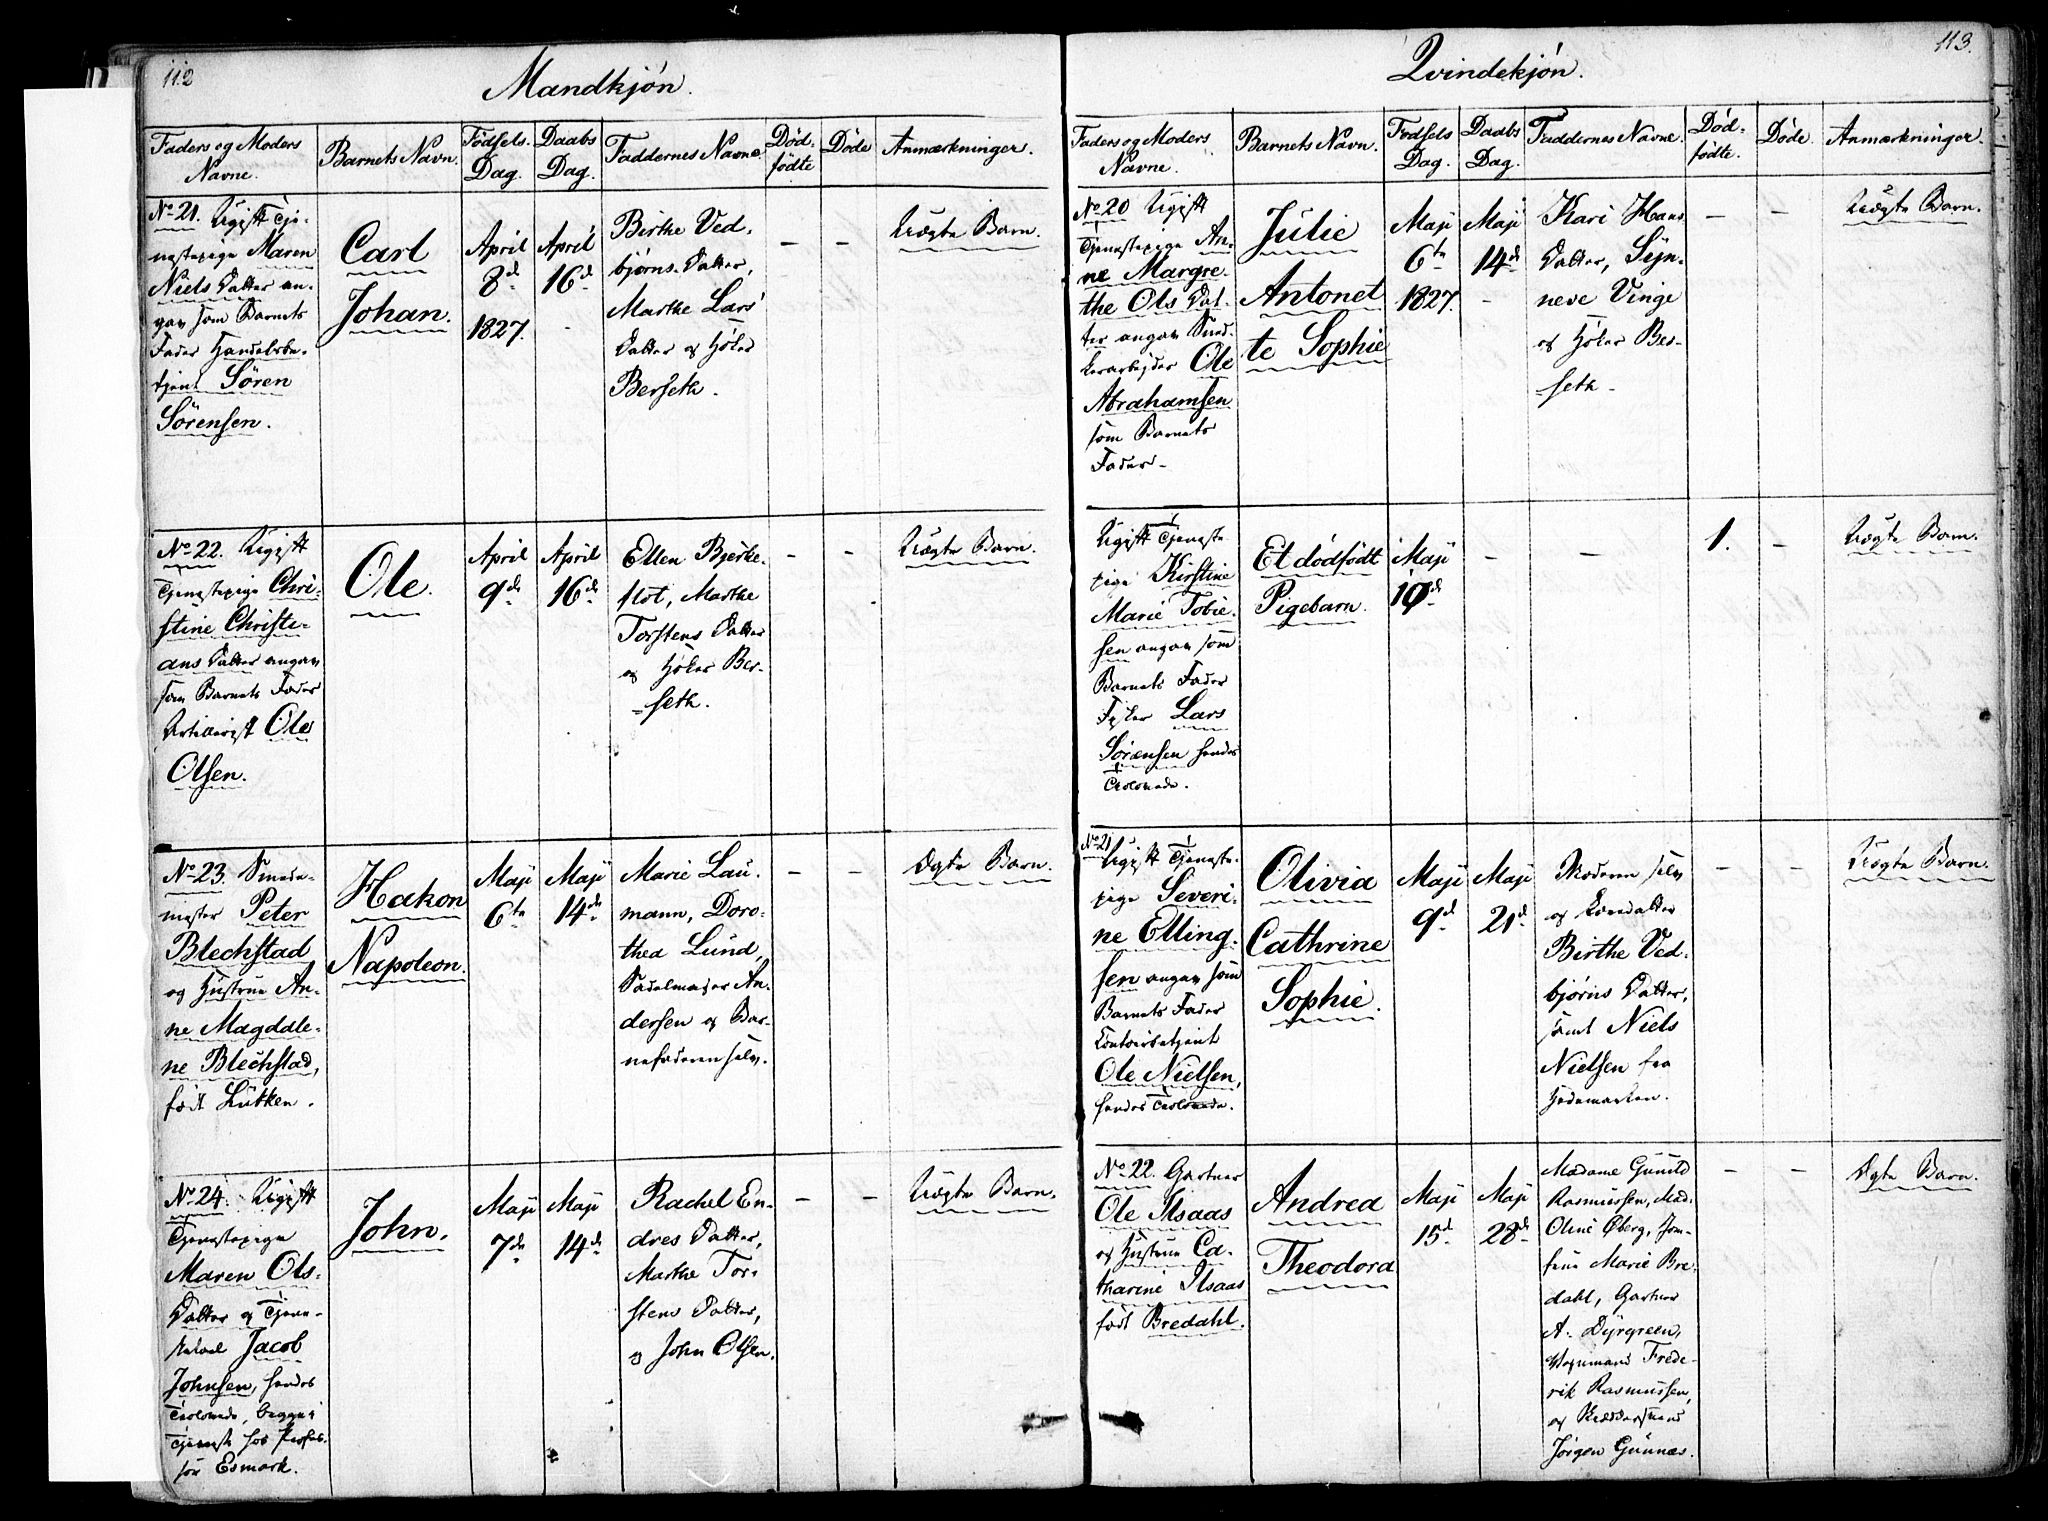 112
Mandkjøn.
Faders og Moders
Navne.
Barnets Navn.
Fødsels-
Dag.
Daabs
Dag.
Faddernes Navne.
Død-
fødte
Døde
Anmærkninger.
No 21. Ugift Tje-
nestepige Maren
Niels Datter an-
gav som Barnets
Fader Handelsbe-
tjent Sören
Sörensen.
Carl
Johan.
April
8d
1827.
April
16d
Birthe Ved-
bjørns Datter,
Marthe Lars
Datter og Høker
Berseth.
-
-
Uægte Barn.
No 22. Ugift
Tjenestepige Chri-
stine Christi-
ans Datter angav
som Barnets Fader
Artillerist Ole
Olsen.
Ole.
April
9de
April
16de
Ellen Bjerke-
slot, Marthe
Torstens Datter
og Høker Ber-
seth.
-
-
Uægte Barn.
No 23. Smede-
mester Peter
Blechstad
og Hustrue An-
ne Magdale-
ne Blechstad,
født Lütken.
Hakon
Napoleon.
Maji
6te
Maji
14de
Marie Lau-
mann, Doro-
thea Lund,
Sadelmager An-
dersen og Bar-
nefaderen selv.
-
-
Ægte Barn.
No 24. Ugift
Tjenestepige
Maren Ols-
Datter og Tjene-
stekarl Jacob
Johnsen, hendes
Trolovede, begge i
Tjeneste hos Profes-
sor Esmark.
John.
Maji
7de
Maji
14de
Rachel En-
dres Datter,
Marthe Tor-
stens Datter,
og John Olsen.
-
-
Uægte Barn.
113.
Qvindekjøn.
Faders og Moders
Navne.
Barnets Navn.
Fødsels
Dag.
Daabs
Dag.
Faddernes Navne.
Død-
fødte.
Døde.
Anmærkninger.
No 20 Ugift
Tjenestepige An-
ne Margre-
the Ols Dat-
ter angav Sned-
kerarbejder Ole
Abrahamsen
som Barnets
Fader.
Julie
Antonet
te Sophie
Maji
6te
1827.
Maji
14de
-
Kari Hans
Datter, Syn-
neve Vinge
og Høker Ber-
seth.
-
-
Uægte Barn.
Ugift Tjeneste
pige Kirstine
Marie Tobie-
sen angav som
Barnets Fader
Lars
Sörensen hendes
Trolovede.
Et dødfødt
Pigebarn.
Maji
10de
-
-
1.
-
Uægte Barn.
No 21
Ugift Tjeneste-
pige Severi-
ne Elling-
sen angav som
Barnets Fader
Contoirbetjent
Ole Nielsen,
hendes Trolovede.
Olivia
Cathrine
Sophie.
Maji
9d
Maji
21d
Moderen selv
og
Birthe Ved-
bjørns Datter,
samt Niels
Nielsen fra
Hedemarken.
-
-
Uægte Barn.
No 22. Gartner
Ole Isaas
og Hustrue Ca-
tharine Isaas
født Bredahl.
Andrea
Theodora
Maji
15d
Maji
28de
Madame Gunild
Rasmussen, Mad.
Oline Øberg, Jom-
frue Marie Bre-
dahl, Gartner
A. Dyrgreen,
Vognmand Frede-
rik Rasmussen,
og
Jörgen Gunnæs.
-
-
Ægte Barn.